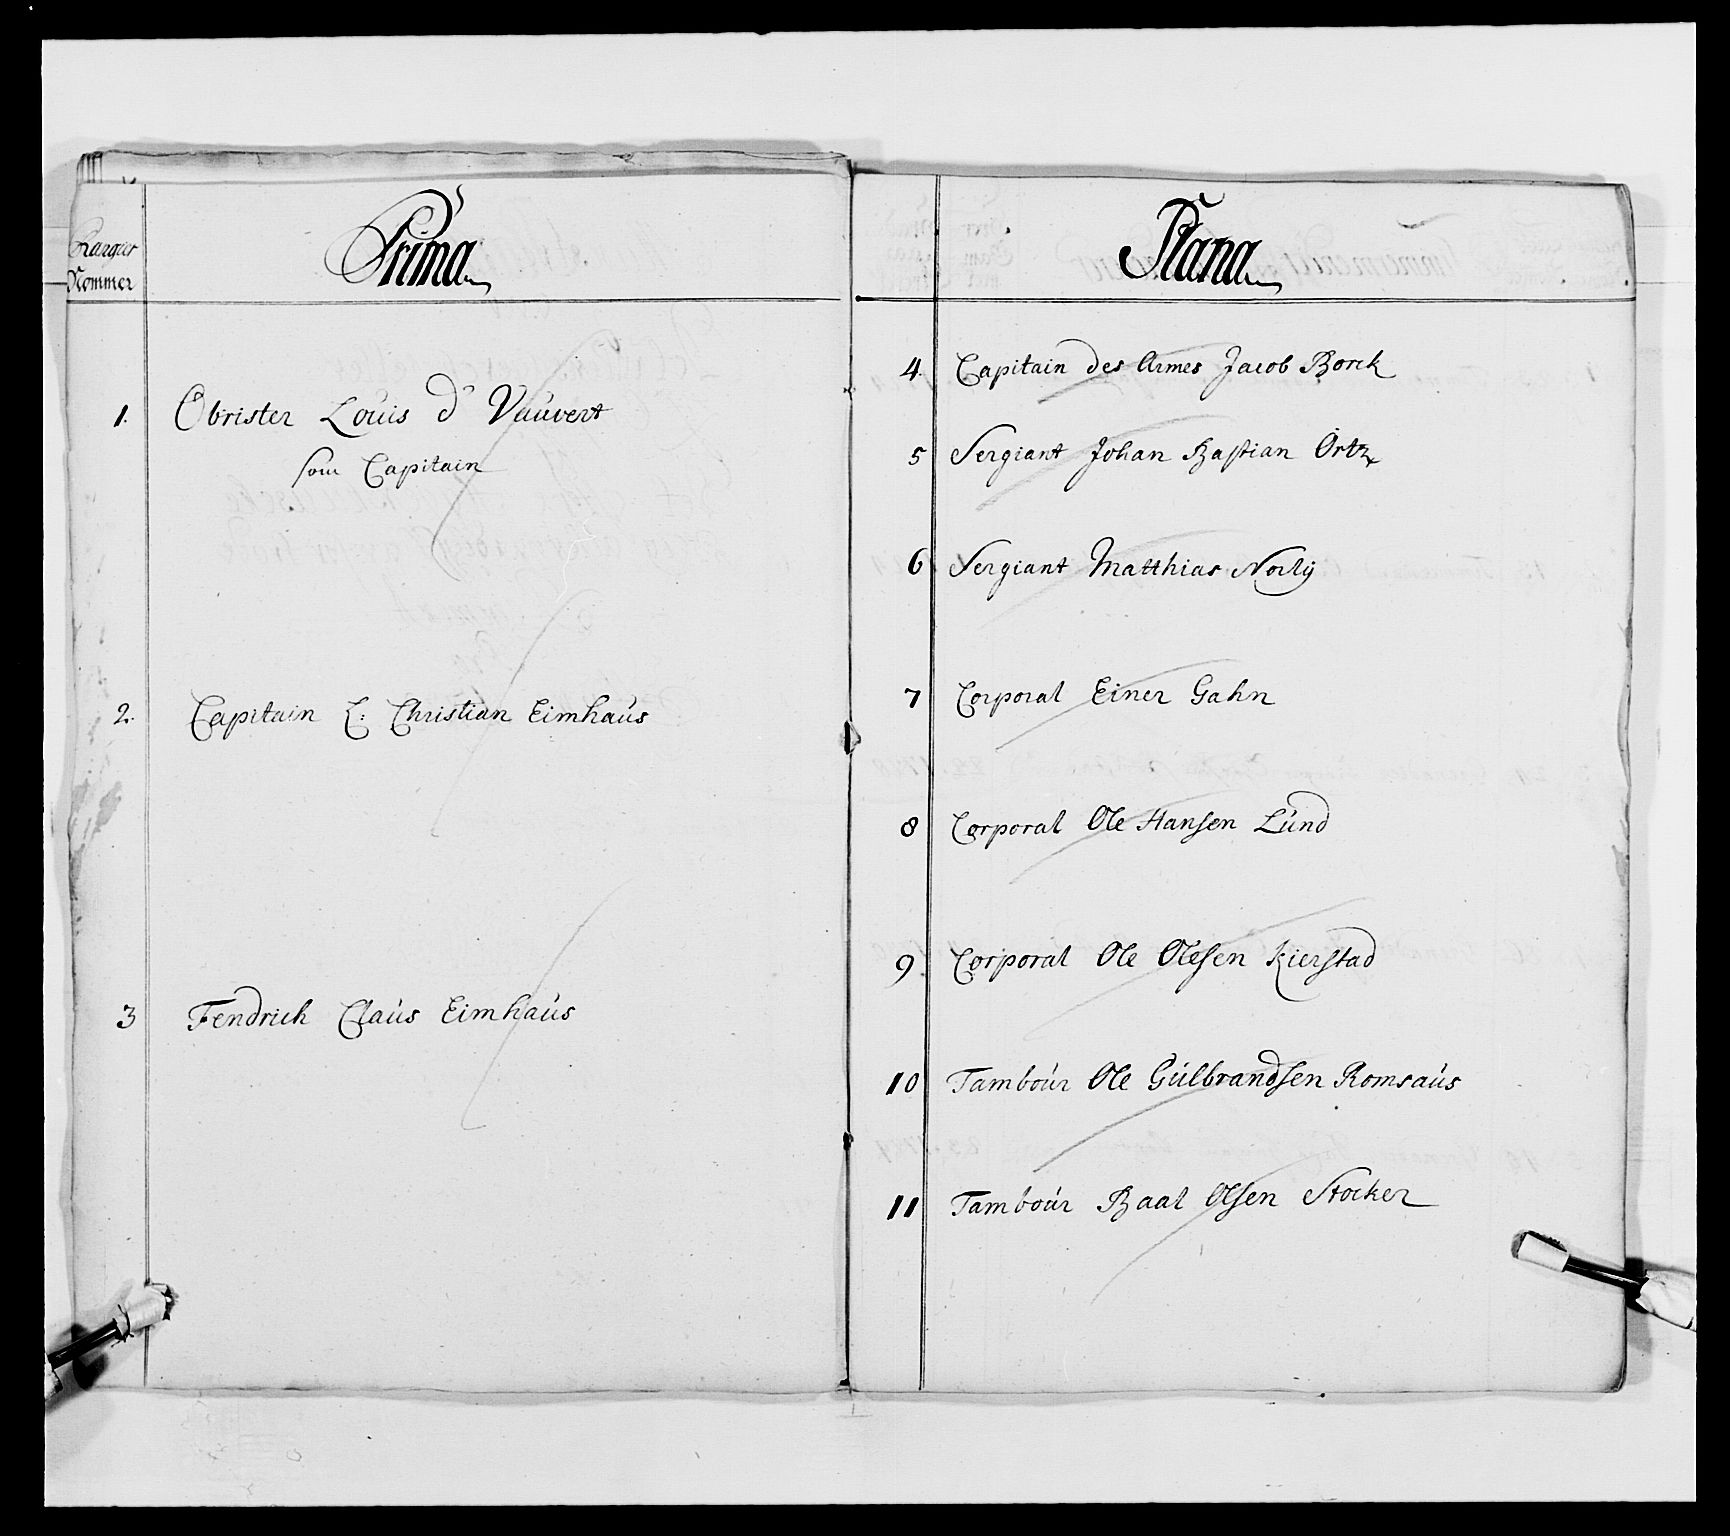 Rangier
Nommer
Prima
1. Obrister Louis d' Vauvert
som Capitain
2. Capitain C: Christian Eimhaus
3 Fendrich Claus Eimhaus
Plana
4. Capitain des Armes Jacob Borck
5 Sergiant Johan Bastian Ortz
6 Sergiant Matthias
7 Corporal Einer Gahn
8 Corporal Ole Hansen Lund
9 Corporal Ole Olesen Kierstad
10 Tambour Ole Gulbrandsen Romsaus
11 Tambour Baal Olsen Stocker